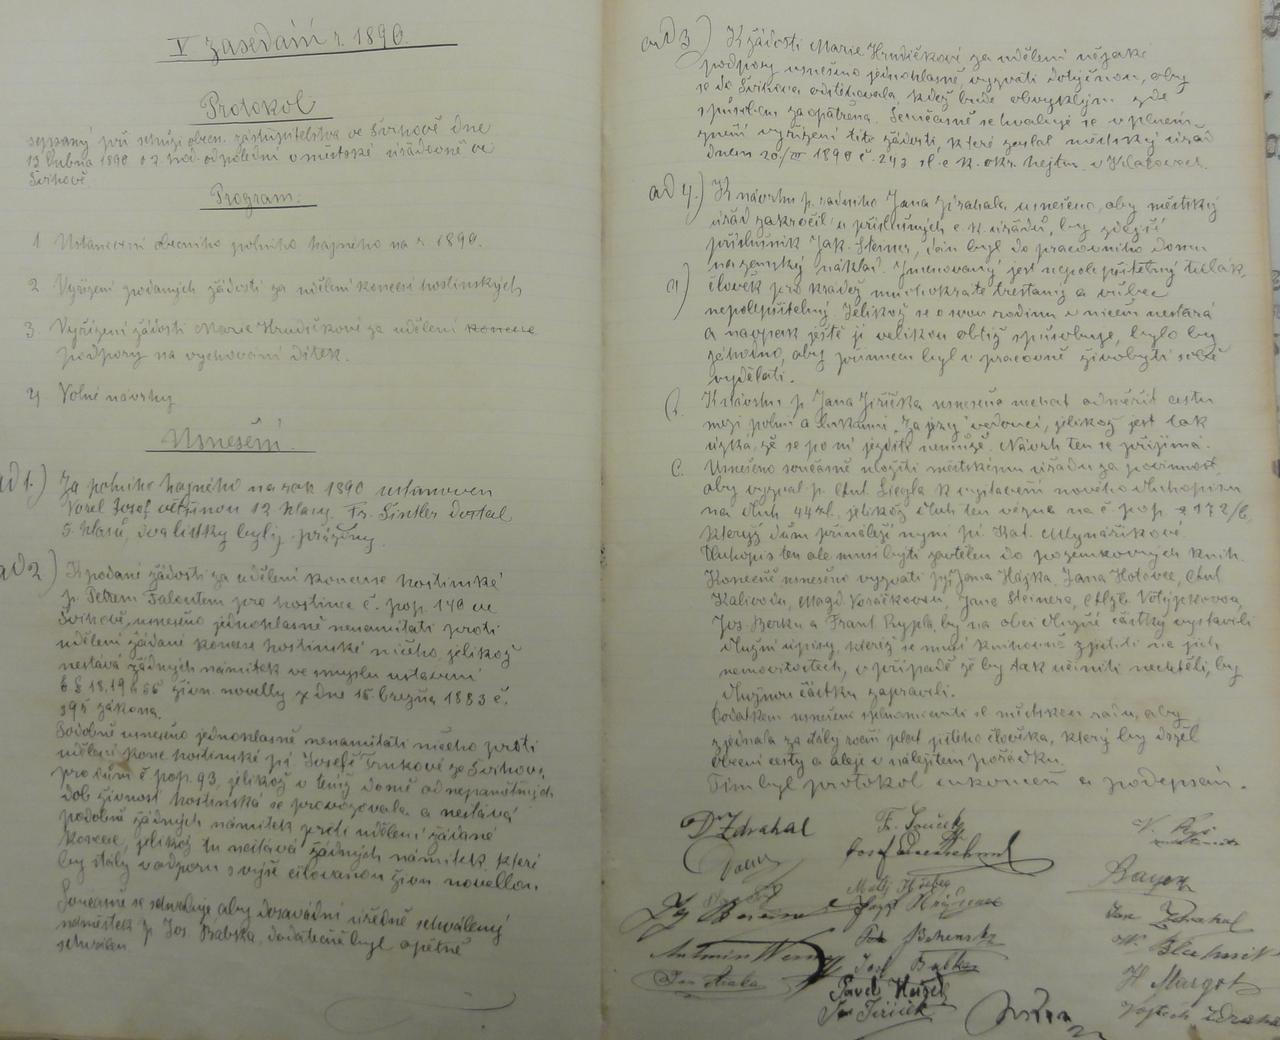 V zasedání r. 1890.
Protokol
sepsaný při schůzi obecn. zastupitelstva ve Švihově dne
12 dubna 1890 o 2 hod. odpolední v městské úřadovně ve
Švihově.
Program:
1 Ustanovení obecního polního hajného na r. 1890.
2 Vyřízení podaných žádostí za udělení koncesí hostinských
3 Vyřízení žádosti Marie Hrudičkové za udělení koncese
podpory na vychování dítek.
4 Volné návrhy
Usnešení.
ad 1.) Za polního hajného na rok 1890 ustanoven
Vorel Josef většinou 12 hlasy. Fr. dostal
5 hlasů, dva lístky byly prázdny.
ad 2) K podané žádosti za udělení koncese hostinské
p. Petrem Faloutem pro hostinec č. pop. 140 ve
Švihově, usnešeno jednohlasně nenamítati proti
udělení žádané koncese hostinské ničeho, jelikož
nestává žádných námitek ve smyslu ustavení
§ 18, 19 živn. novelly z dne 15 března 1883 č.
39ř zákona.
Podobně usnešeno jednohlasně nenamítati ničeho proti
udělení konc. hostinské pí Josefě Trnkové ze Švihova,
pro dům č pop. 93, jelikož v témž domě od nepamětných
dob živnost hostinská se provozovala a nestává
podobně žádných námitek proti udělení žádané
koncese, jelikož tu nestává žádných námitek, které
by stály v odporu s výše citovanou živn novellou.
Současně se schvaluje, aby dosavádní úředně schválený
náměstek p. Jos. Babka, dodatečně byl opětně
schválen.
ad 3) K žádosti Marie Hrudičkové za udělení nějaké
podpory usnešeno jednohlasně, vyzvati dotyčnou, aby
se do Švihova odstěhovala, kdež bude obvyklým zde
způsobem zaopatřena. Současně se schvaluje v plném
znění vyřízení této žádosti, které zaslal městský úřad
dnem 20/III 1890 č. 242 sl. c. k. okr. hejtm. v Klatovech.
ad 4.) K návrhu p. radního Jana Zdrahala usnešeno, aby městský
úřad zakročil u příslušných c. k. úřadů, by zdejší
příslušník Jak. Steiner, dán byl do pracovního domu
na zemský náklad. Jmenovaný jest nepolepšitelný tulák,
a) člověk pro krádež mnohokráte trestaný a vůbec
nepolepšitelný. Jelikož se o svou rodinu v ničem nestará
a naopak ještě jí velikou obtíž spůsobuje, bylo by
záhodno, aby přinucen byl v pracovně živobytí sobě
vydělati.
b. K návrhu p. Jana Jiříčka usnešeno nechat odměřit cestu
mezi polmi a lukami „Za jezy" vedoucí, jelikož jest tak
úzká, že se po ní jezdit nemůže. Návrh ten se přijímá.
c. Usnešeno současně uložiti městskému úřadu za povinnost,
aby vyzval p. Ant. Siegla k vystavení nového dluhopisu
na dluh 44 zl. jelikož dluh ten vězne na č. pop. 172/b,
kterýž dům přináleží nyní pí Kat. Mlynáříkové.
Dluhopis ten ale musí býti zavtělen do pozemkových knih.
Konečně usnešeno vyzvati pp. Jana Hájka, Jana Hotovce, Ant.
Kalivodu, Magd. Voráčkovou, Jana Steinera, Alžb. Votýpkovou,
Jos. Berku a Frant Rypla, by na obci dlužné částky vystavili
dlužní úpisy, kteréž se musí knihovně zjistiti na jich
nemovitostech, v případě že by tak učiniti nechtěli, by
dlužnou částku zapravili.
Dodatkem usnešeno splnomocniti sl. městskou radu, aby
zjednala za stály roční plat jistého člověka, který by držel
obecní cesty a aleje v náležitém pořádku.
Tím byl protokol ukončen a podepsán.
Dr Zdrahal
F. Jiříček
Bayer
Jan Zdrahal
Josf Babka
H Margot
Pavel Hájek
Jan Jiříček
Vojtěch Zdrahal